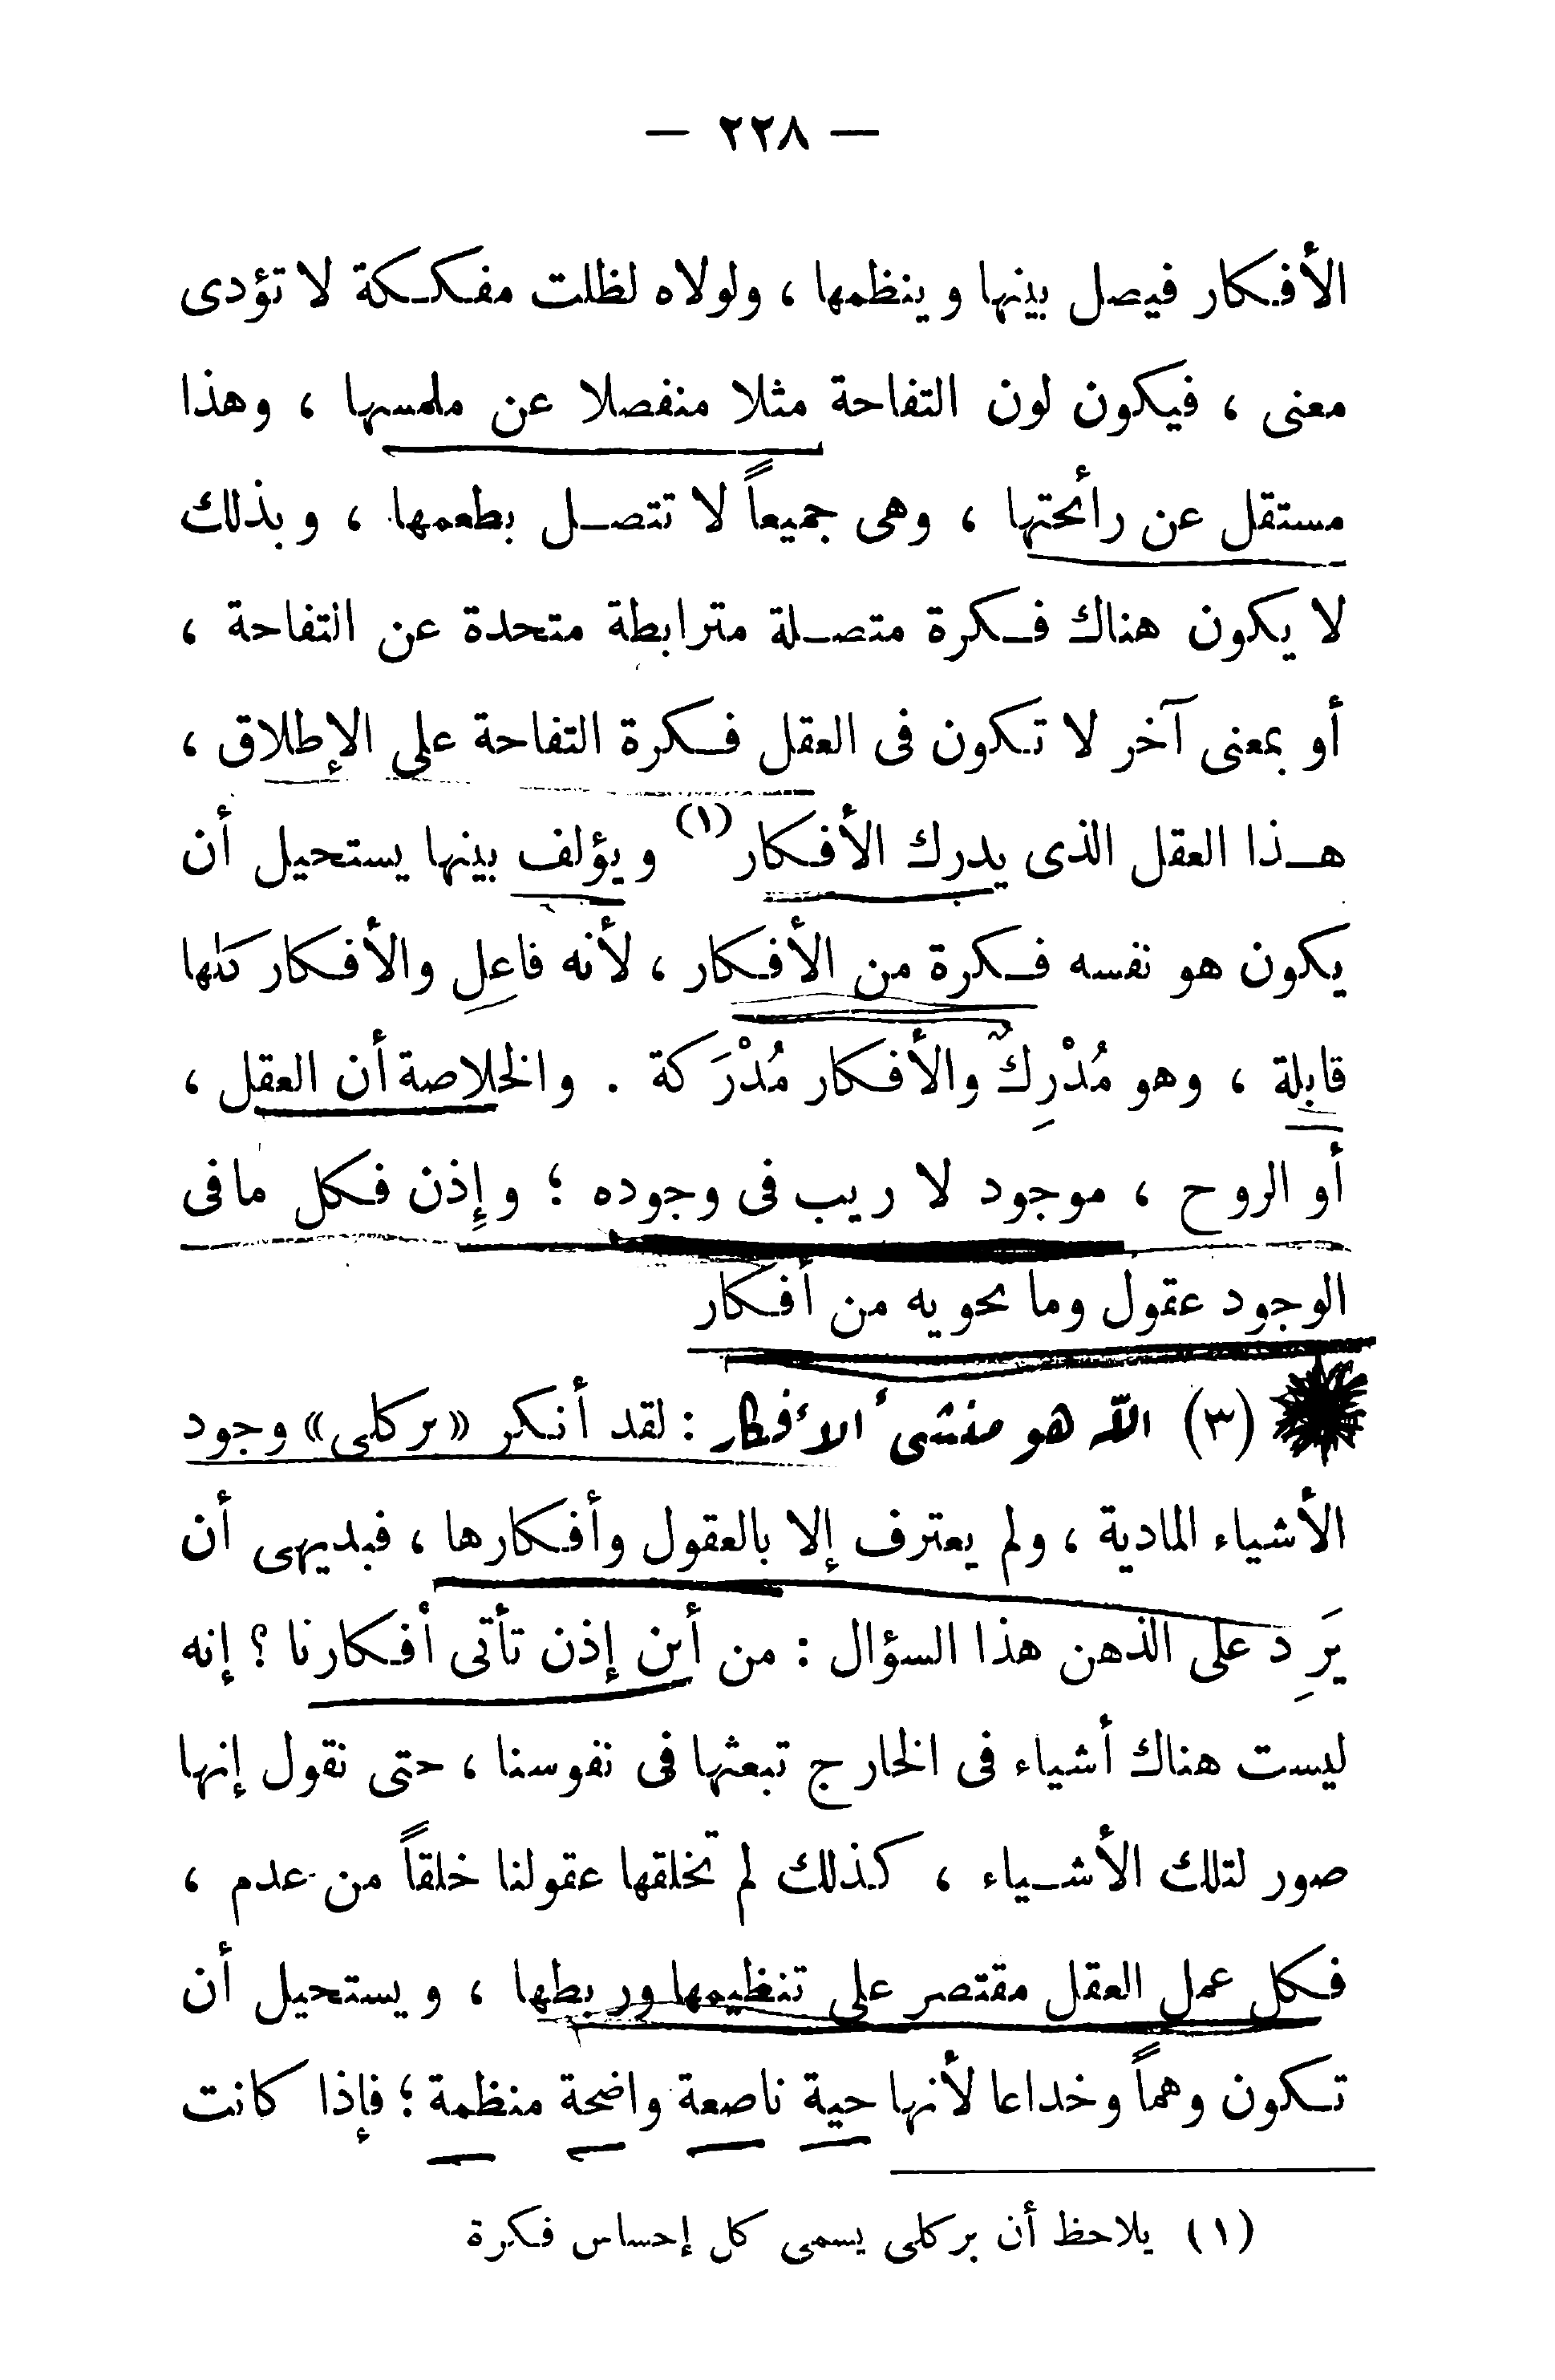 — ٢٢٨ —
الأفكار فيصل بينها وينظمها ، ولولاه لظلت مفككة لا تؤدى
معنى ، فيكون لون التفاحة مثلا منفصلا عن ملمسها ، وهذا
مستقل عن رائحتها ، وهى جميعاً لا تتصل بطعمها ، وبذلك
لا يكون هناك فكرة متصلة مترابطة متحدة عن التفاحة ،
أو بمعنى آخر لا تكون فى العقل فكرة التفاحة على الإطلاق ،
هذا العقل الذى يدرك الأفكار (١) ويؤلف بينها يستحيل أن
يكون هو نفسه فكرة من الأفكار ، لأنه فاعل والأفكار كلها
قابلة ، وهو مُدْرِكٌ والأفكار مُدْرَكة . والخلاصة أن العقل ،
أو الروح ، موجود لا ريب فى وجوده ؛ وإذن فكل ما فى
الوجود عقول وما تحويه من أفكار
(٣) اللّه هو منشىء الأفكار : لقد أنكر «بركلى» وجود
الأشياء المادية ، ولم يعترف إلا بالعقول وأفكارها ، فبديهى أن
يَرِد على الذهن هذا السؤال : من أين إذن تأتى أفكارنا ؟ إنه
ليست هناك أشياء فى الخارج تبعثها فى نفوسنا ، حتى نقول إنها
صور لتلك الأشياء ، كذلك لم تخلقها عقولنا خلقاً من عدم ،
فكل عمل العقل مقتصر على تنظيمها وربطها ، ويستحيل أن
تكون وهماً وخداعا لأنها حية ناصعة واضحة منظمة ؛ فإذا كانت
(١) يلاحظ أن بركلى يسمى كل إحساس فكرة